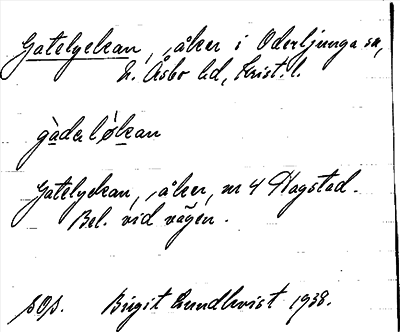 Gatelyckan, åker i Oderljunga sn,
N. Åsbo hd, Krist. l.
gàdəløkan
Gatelyckan, åker, nr 4 Hagstad.
Bel. vid vägen.
sOs. Birgit Lundkvist 1938.